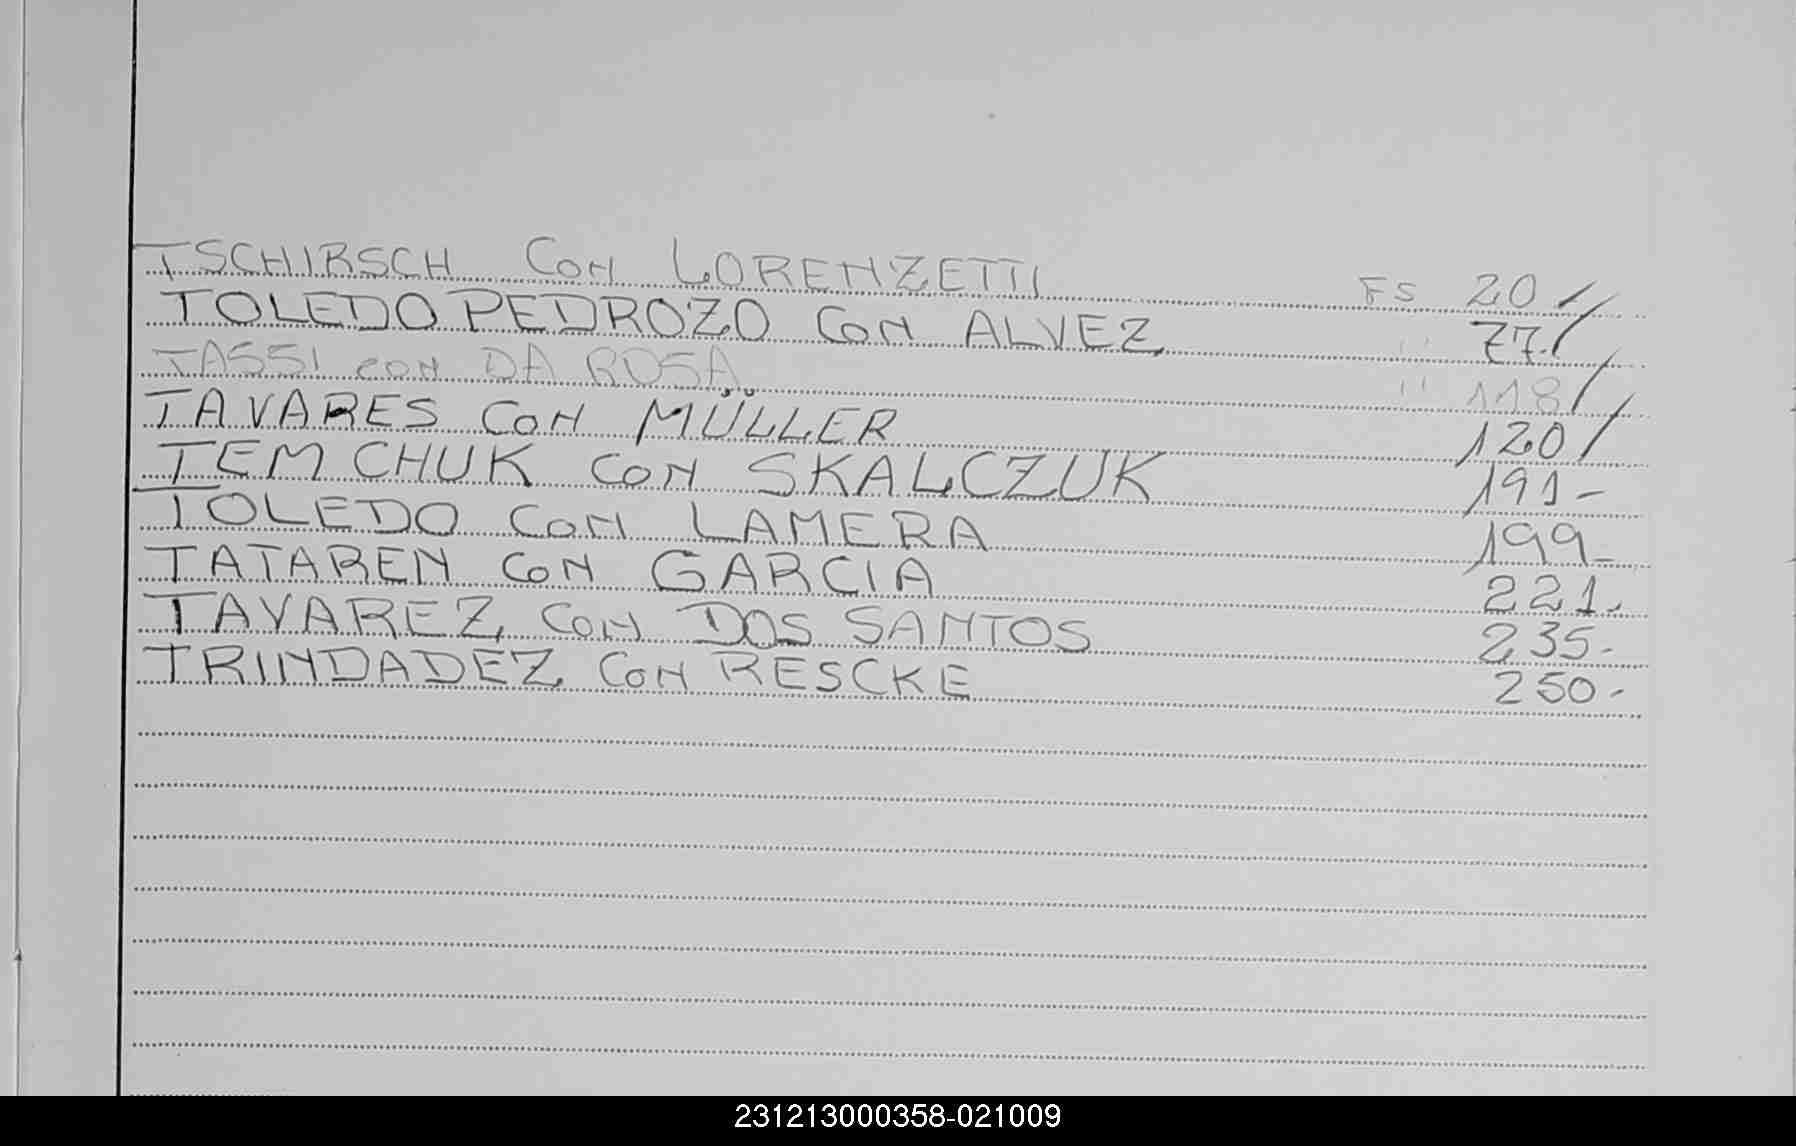 TSCHIRSCH CON LORENZETTI FS 20/
TOLEDO PEDROZO CON ALVEZ " 77./
TASSI CON DA ROSA " 118/
TAVARES CON MÜLLER 120/
TEMCHUK CON SKALCZUK 191-
TOLEDO CON LAMERA 199-
TATAREN CON GARCIA 221-
TAVAREZ CON DOS SANTOS 235-
TRINDADEZ CON RESCKE 250-
231213000358-021009